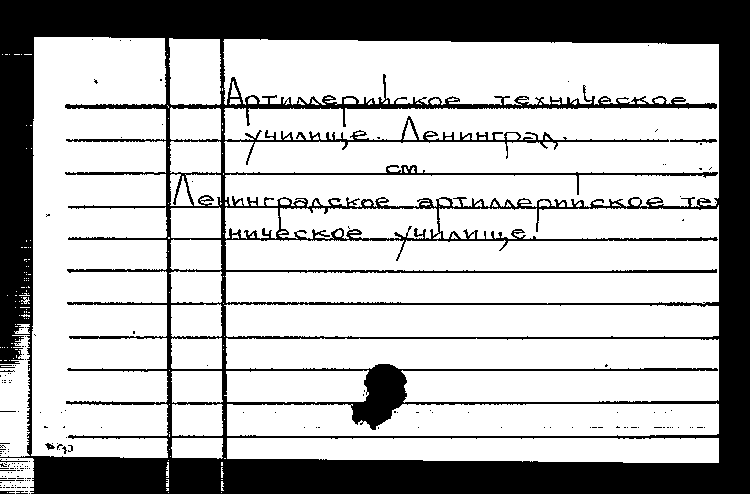 Артиллерийское техническое
училище. Ленинград.
см.
Ленинградское артиллерийское тех
ническое училище.